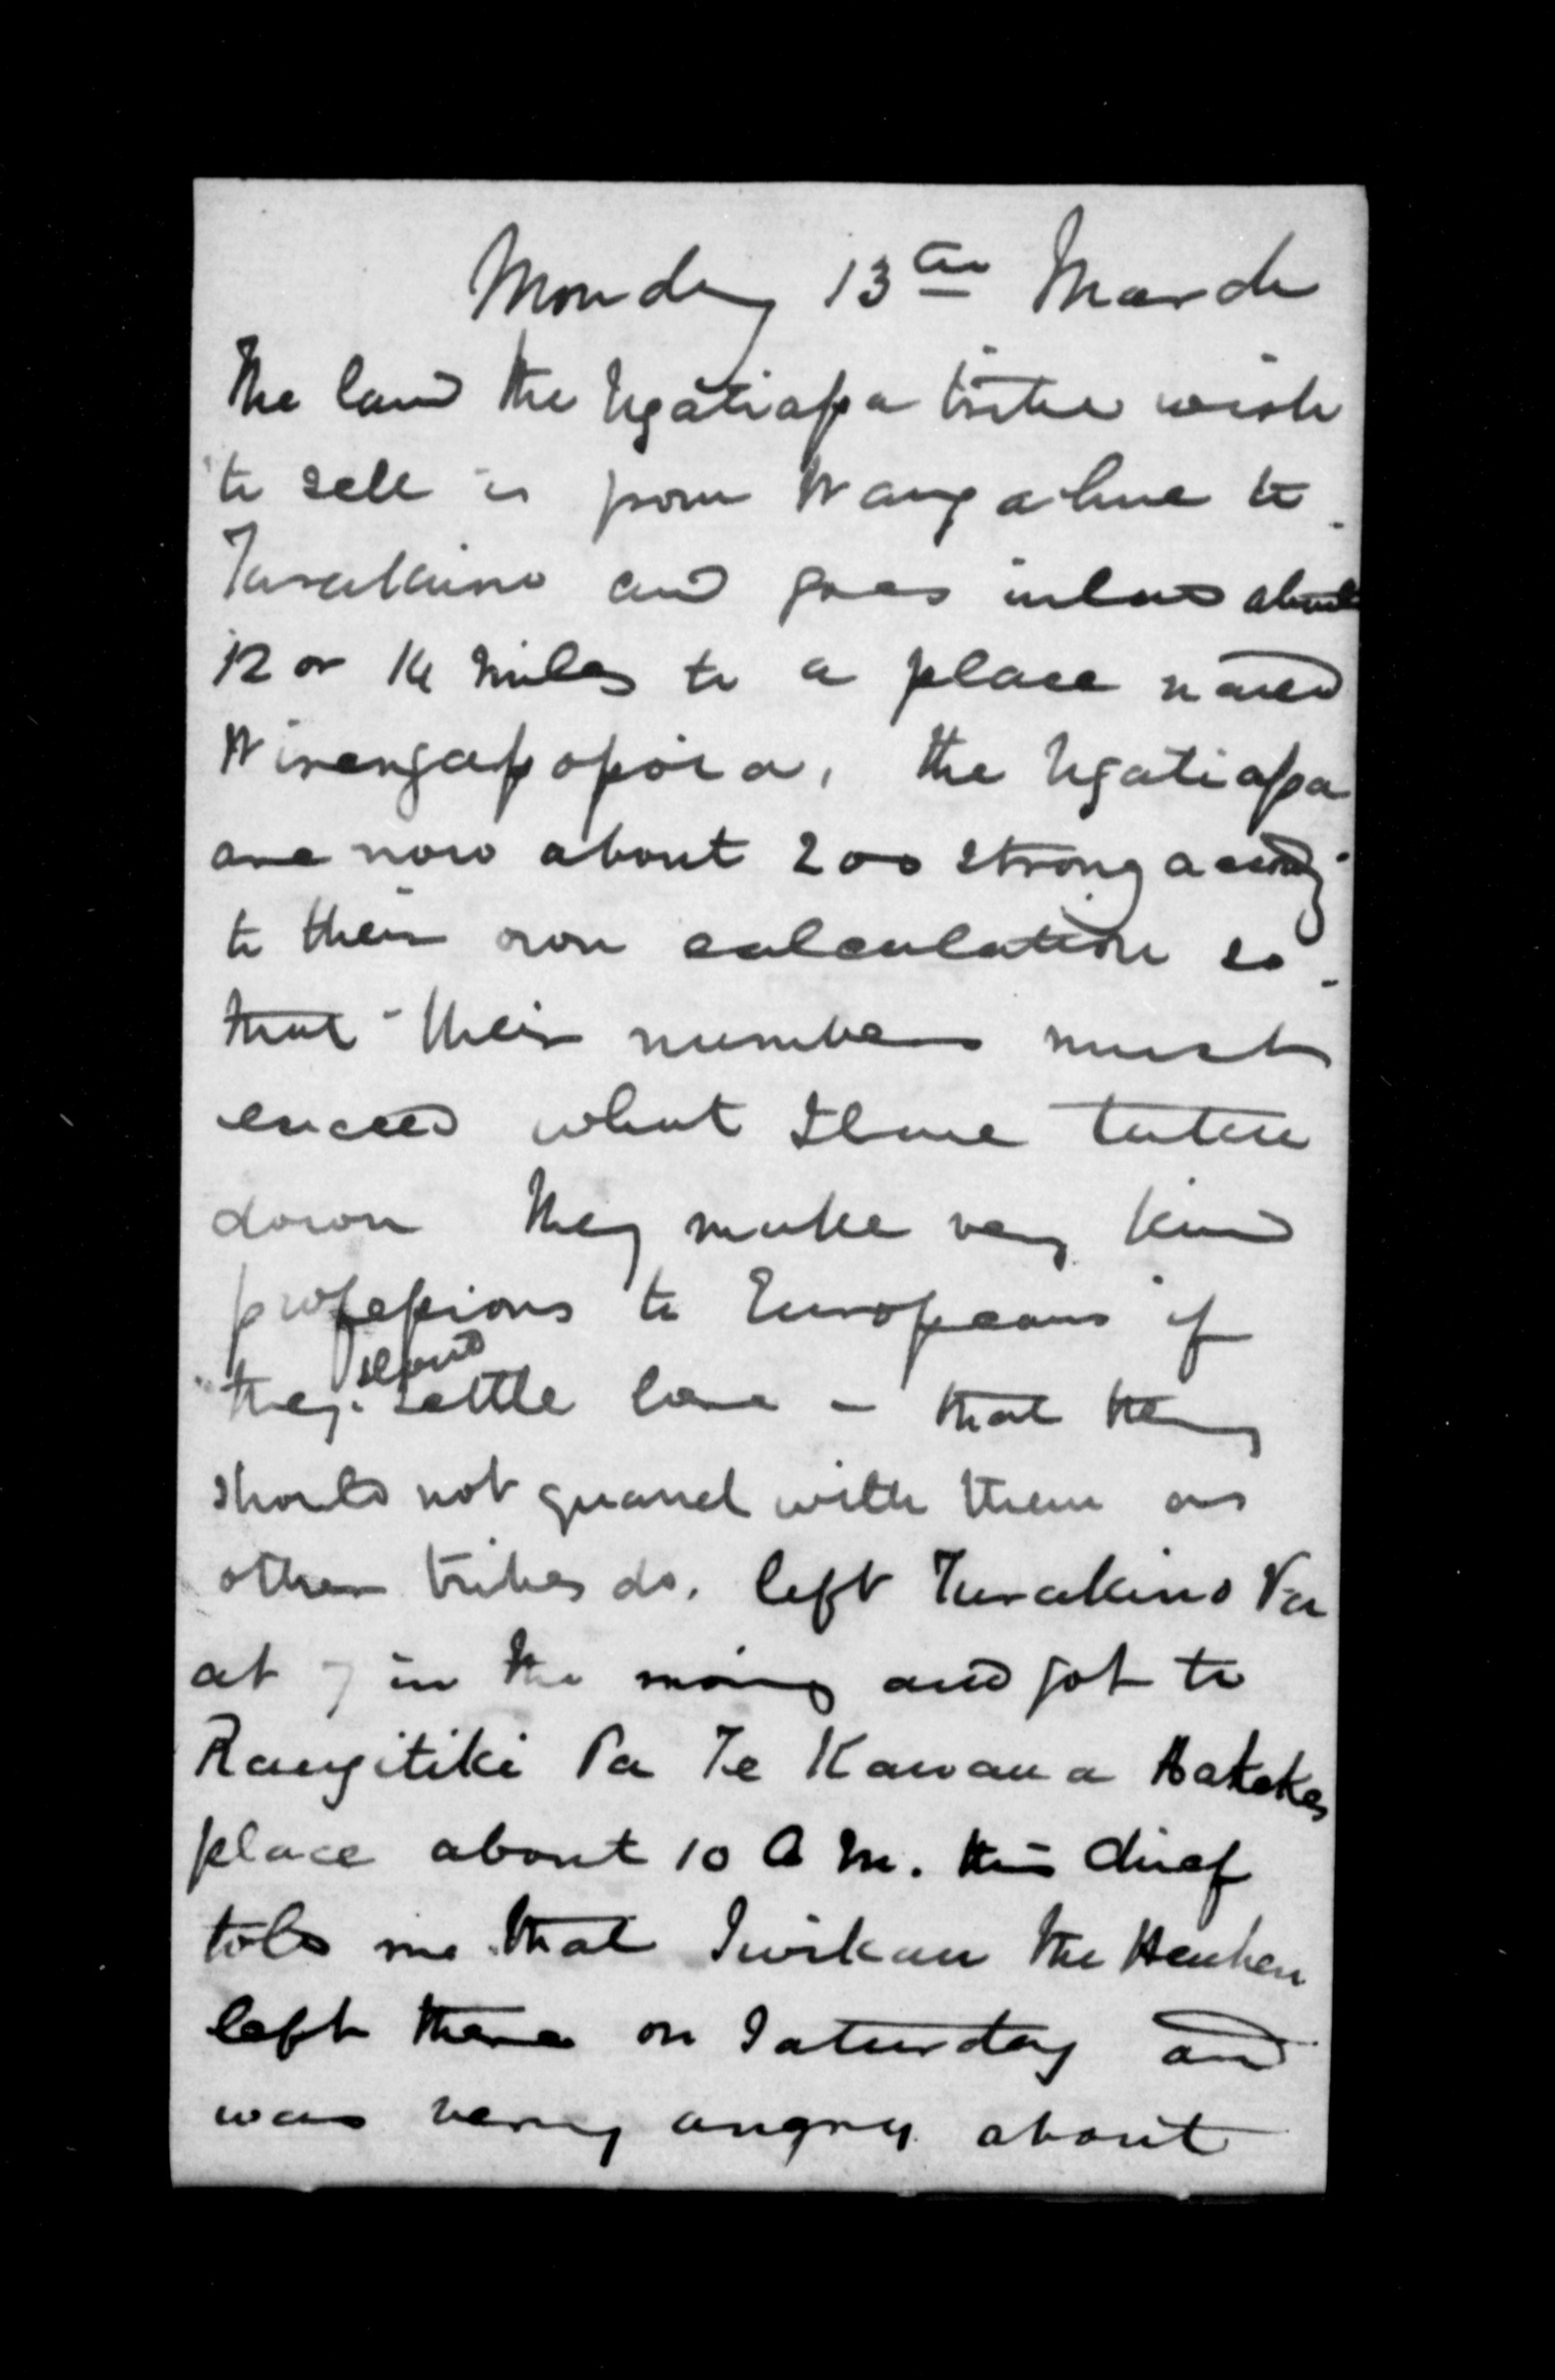 Monday 13th March
The land the Ngatiapa tribe wish
to sell is from Wangahue to
Turakino and goes inland about
12 or 14 miles to a place named
Wirengapopoia, the Ngatiapa
are now about 200 strong accordg
to their own calculation so
that their numbers must
exceed what I have taken
down They make very kind
professions to Europeans if
they should settle here - that they
should not quarrel with them as
other tribes do. left Turakino Pa
at 7 in the morng and got to
Rangitiki Pa Te Kawana Hakekes
place about 10 A M. this chief
told me that Iwikau the Heuheu
left there on Saturday and
was very angry about